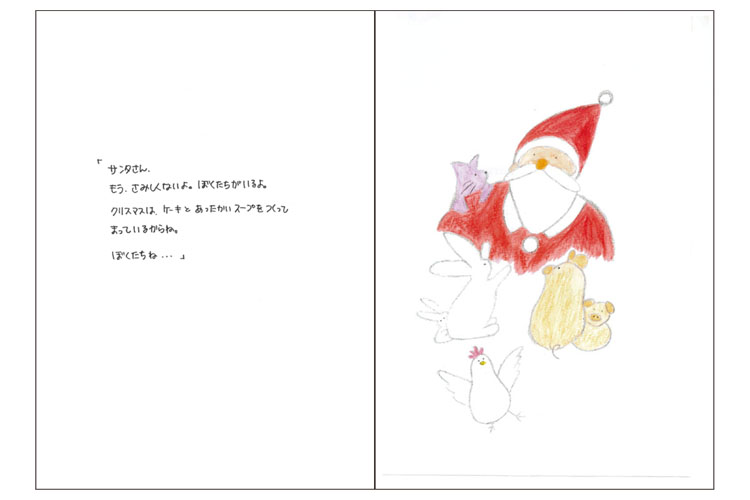 「サンタさん、
もう、さみしくないよ。ぼくたちがいるよ。
クリスマスは、ケーキと あったかいスープをつくって
まっているからね。
ぼくたちね・・・」